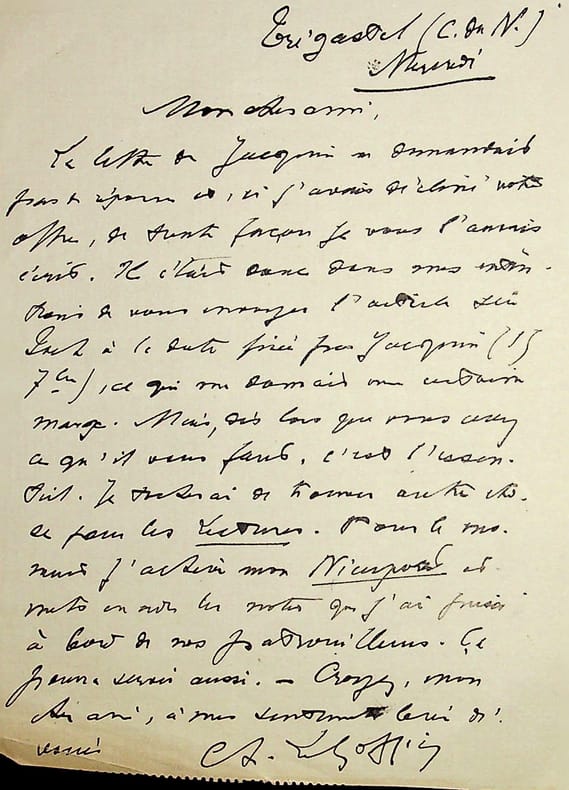 Trégastel (C. du N.)
Mercredi
Mon cher ami,
La lettre de Jacquin ne demandait
pas de réponse et, si j'avais décliné votre
offre, de toute façon je vous l'aurais
écrit. Il était donc dans mes inten-
tions de vous envoyer l'article sur
à la date fixée par Jacquin (15
7bre), ce qui me donnait une certaine
marge. Mais, dès lors que vous avez
ce qu'il vous faut, c'est l'essen-
tiel. Je tacherai de trouver autre cho-
se pour les Lectures. Pour le mo-
ment j'achève mon Nieuport et
mets en ordre les notes que j'ai prises
à bord de nos patrouilleurs. Ça
pourra servir aussi. – Croyez, mon
cher ami, à mes sentiments bien dé-
voués
Ch. Le Goffic